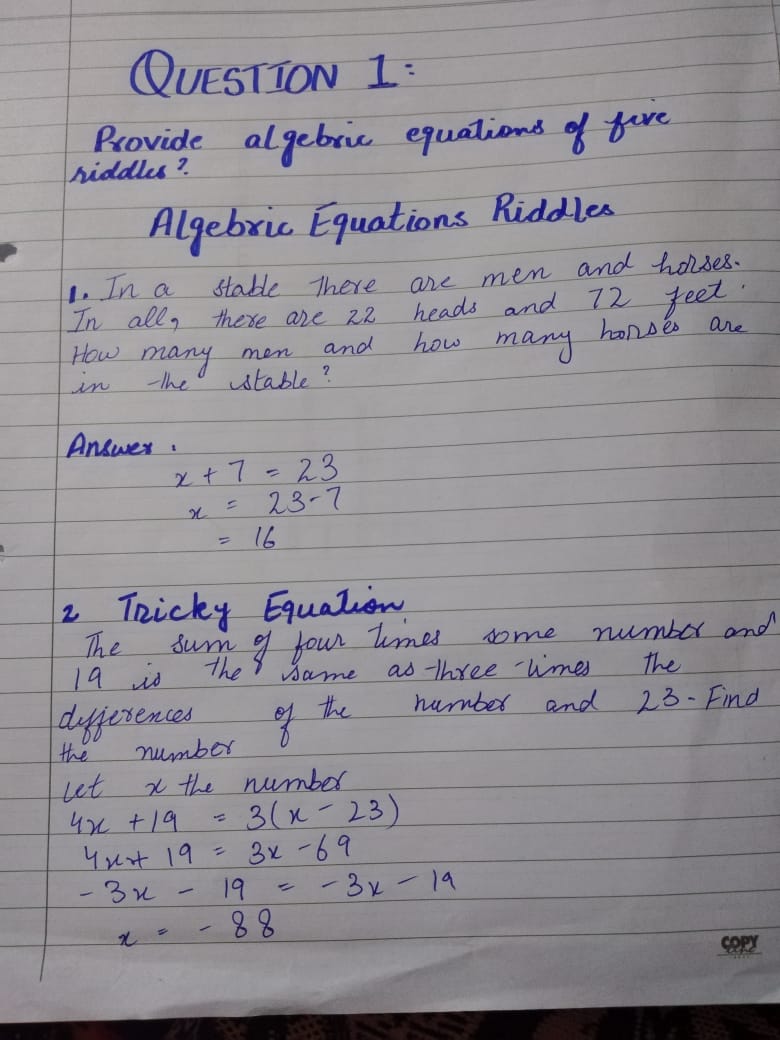 QUESTION 1:
Provide algebric equations of five
riddles?
Algebric Equations Riddles
1. In a stable There are men and horses.
In all, there are 22 heads and 72 feet.
How many men and how many horses are
in the stable?
Answer.
x + 7 = 23
x = 23-7
= 16
2 Tricky Equation
The sum of four times some number and
19 is the same as three times the
differences of the number and 23 - Find
the number
Let x the number
4x + 19 = 3(x - 23)
4x + 19 = 3x - 69
- 3x - 19 = - 3x - 19
x = - 88
COPY